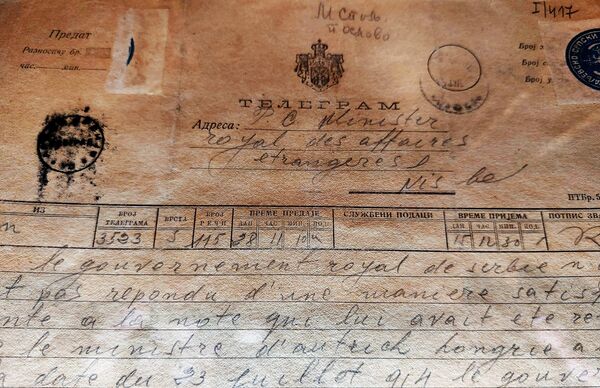 I/417
Предат
Разносачу бр.
час. мин.
ТЕЛЕГРАМ
Адреса:
Minister
royal des affaires
etrangeres
Nis
Број
Број
Број
ПТБр. 5
ИЗ БРОЈ ТЕЛЕГРАМА ВРСТА БРОЈ РЕЧИ ВРЕМЕ ПРЕДАЈЕ ДАН ЧАС МИН. ПОД. СЛУЖБЕНИ ПОДАЦИ ВРЕМЕ ПРИЈЕМА ДАН ЧАС МИН. ПОД. ПОТПИС
3523 S 115 28 11 10 12 30
le gouvernement royal de serbie n
pas repondu d'une maniere satisf
nte a la note qui lui avait ete re
le ministre d'autrich hongrie a
date du 23 juillet 914 le gouver